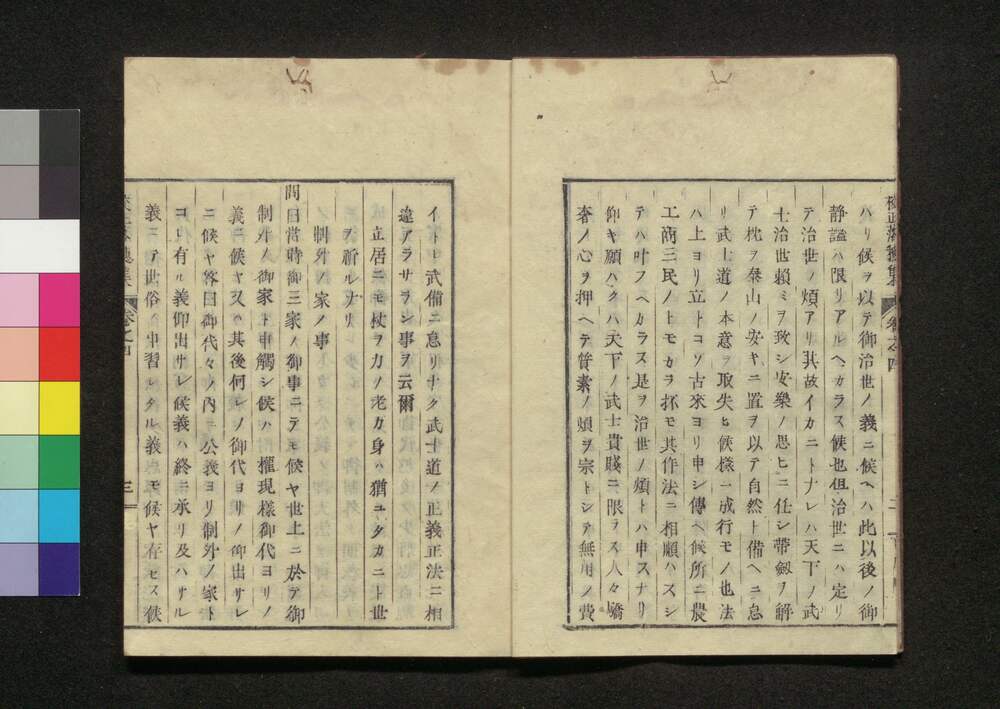 ハリ候ヲ以テ御治世ノ義ニ候ヘハ此以後ノ御
靜謐ハ限リアルヘカラス候也但治世ニハ定リ
テ治世ノ煩アリ其故イカニトナレハ天下ノ武
士治世頼ミヲ致シ安樂ノ思ヒニ任シ帶劔ヲ解
テ枕ヲ泰山ノ安キニ置ヲ以テ自然ト備ヘニ怠
リ武士道ノ本意ヲ取失ヒ候樣ニ成行モノ也法
ハ上ヨリ立トコソ古來ヨリ申シ傳ヘ候所ニ農
工商三民ノトモカラ抔モ其作法ニ相順ハスシ
テハ叶フヘカラス是ヲ治世ノ煩トハ申スナリ
仰キ願ハクハ天下ノ武士貴賤ニ限ラス人々驕
奢ノ心ヲ押ヘテ質素ノ頬ヲ宗トシテ無用ノ費
卷之四
イトレ武備ニ怠リナク武士道ノ正義正法ニ相
違アラサラン事ヲ云爾
立居ニモ杖ヲ力ノ老カ身ハ猶ユタカニト世
ヲ祈ルナリ
制外ノ家ノ事
問曰當時御三家ノ御事ニテモ候ヤ世上ニ於テ御
制外ノ御家ト申觸シ候ハ 權現樣御代ヨリノ
義ニ候ヤ又ハ其後何レノ御代ヨリノ仰出サレ
ニ候ヤ答曰御代々ノ內ニ公義ヨリ制外ノ家ト
コレ有ル義仰出サレ候義ハ終ニ承リ及ハサル
義ニテ世俗ノ申習レタル義モ候ヤ存セス候
卷之四
三